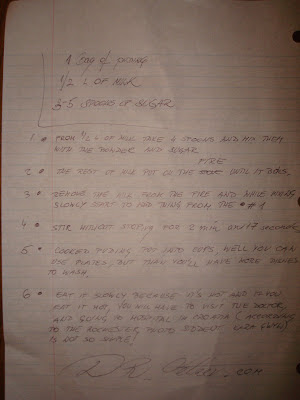 1 bag of puding
1/2 L OF MILK
3-5 SPOONS OF SUGAR
1 • FROM 1/2 L OF MILK TAKE 4 SPOONS AND MIX THEM
WITH THE POWDER AND SUGAR
FIRE
2 • THE REST OF MILK PUT ON THE UNTIL IT BOILS,
3 • REMOVE THE MILK FROM THE FIRE AND WHILE MIXING
SLOWLY START TO ADD THING FROM THE • # 1
4 • STIR WITHOUT STOPING FOR 2 MIN AND 17 SECONDS
5 • COOKED PUDING PUT INTO CUPS. WELL YOU CAN
USE PLATES, BUT THEN YOU'LL HAVE MORE DISHES
TO WASH.
6 • EAT IT SLOWLY BECAUSE IT'S HOT AND IF YOU
EAT IT HOT, YOU WILL HAVE TO VISIT THE DOCTOR,
AND GOING TO HOSPITAL IN CROATIA (ACCORDING
TO THE ROCHESTER, STUDENT
IS NOT SO SIMPLE!
DR. .COM